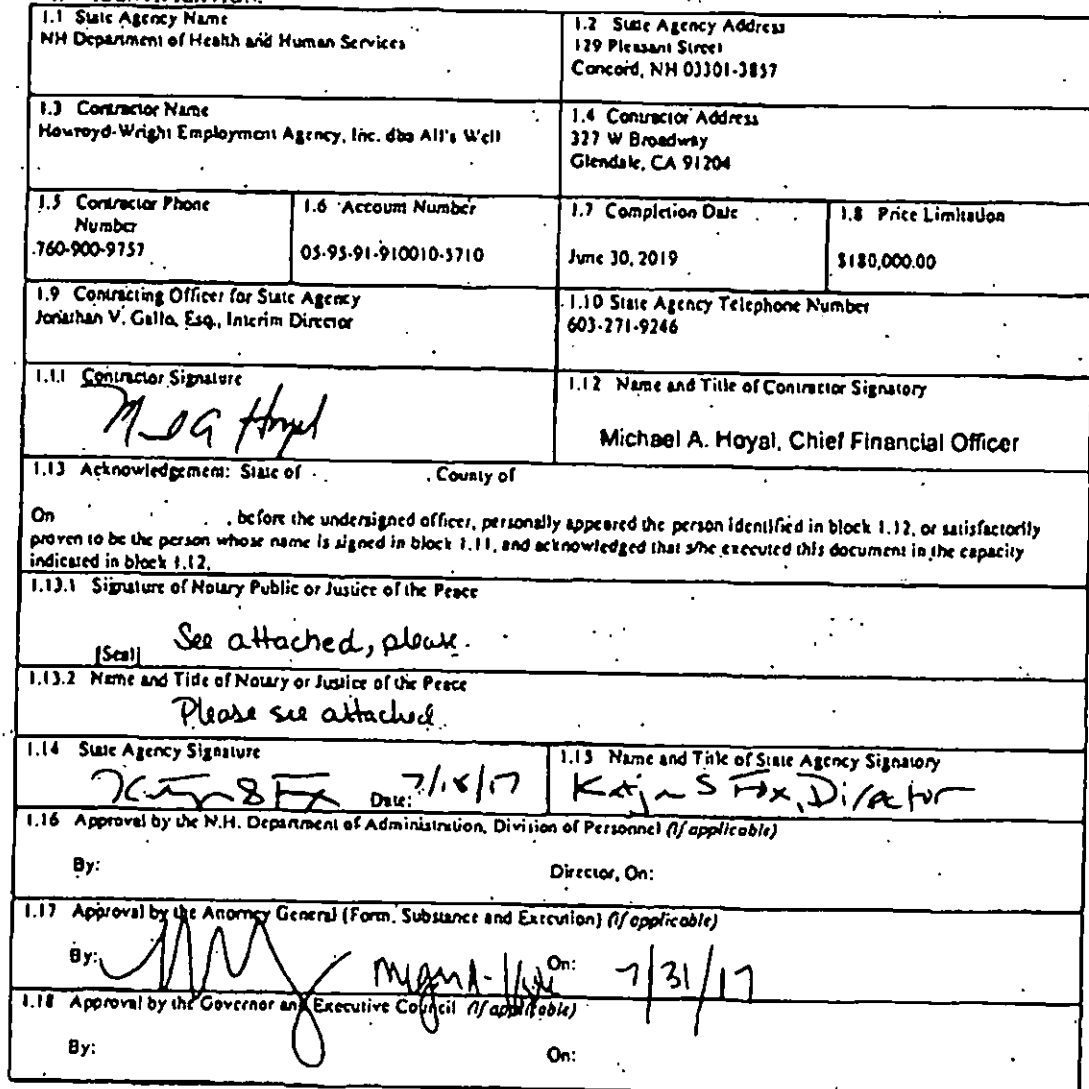 1.1 State Agency Name
NH Department of Health and Human Services
1.2 State Agency Address
129 Pleasant Street
Concord, NH 03301-3857
1.3 Contractor Name
Howroyd-Wright Employment Agency, Inc. dba All's Well
1.4 Contractor Address
327 W Broadway
Glendale, CA 91204
1.5 Contractor Phone
Number
760-900-9757
1.6 Account Number
05-95-91-910010-5710
1.7 Completion Date
June 30, 2019
1.8 Price Limitation
$180,000.00
1.9 Contracting Officer for State Agency
Jonathan V. Gallo, Esq., Interim Director
1.10 State Agency Telephone Number
603-271-9246
1.11 Contractor Signature
1.12 Name and Title of Contractor Signatory
Michael A. Hoyal, Chief Financial Officer
1.13 Acknowledgement: State of , County of
On , before the undersigned officer, personally appeared the person identified in block 1.12, or satisfactorily
proven to be the person whose name is signed in block 1.11, and acknowledged that s/he executed this document in the capacity
indicated in block 1.12.
1.13.1 Signature of Notary Public or Justice of the Peace
See attached, please.
[Seal]
1.13.2 Name and Title of Notary or Justice of the Peace
Please see attached.
1.14 State Agency Signature
Date: 7/18/17
1.15 Name and Title of State Agency Signatory
Katja S Fox, Director
1.16 Approval by the N.H. Department of Administration, Division of Personnel (if applicable)
By: Director, On:
1.17 Approval by the Attorney General (Form, Substance and Execution) (if applicable)
By: On: 7/31/17
1.18 Approval by the Governor and Executive Council (if applicable)
By: On: